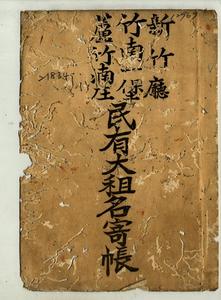 新竹廳
竹南一堡
蘆竹湳庄
民有大租名寄帳